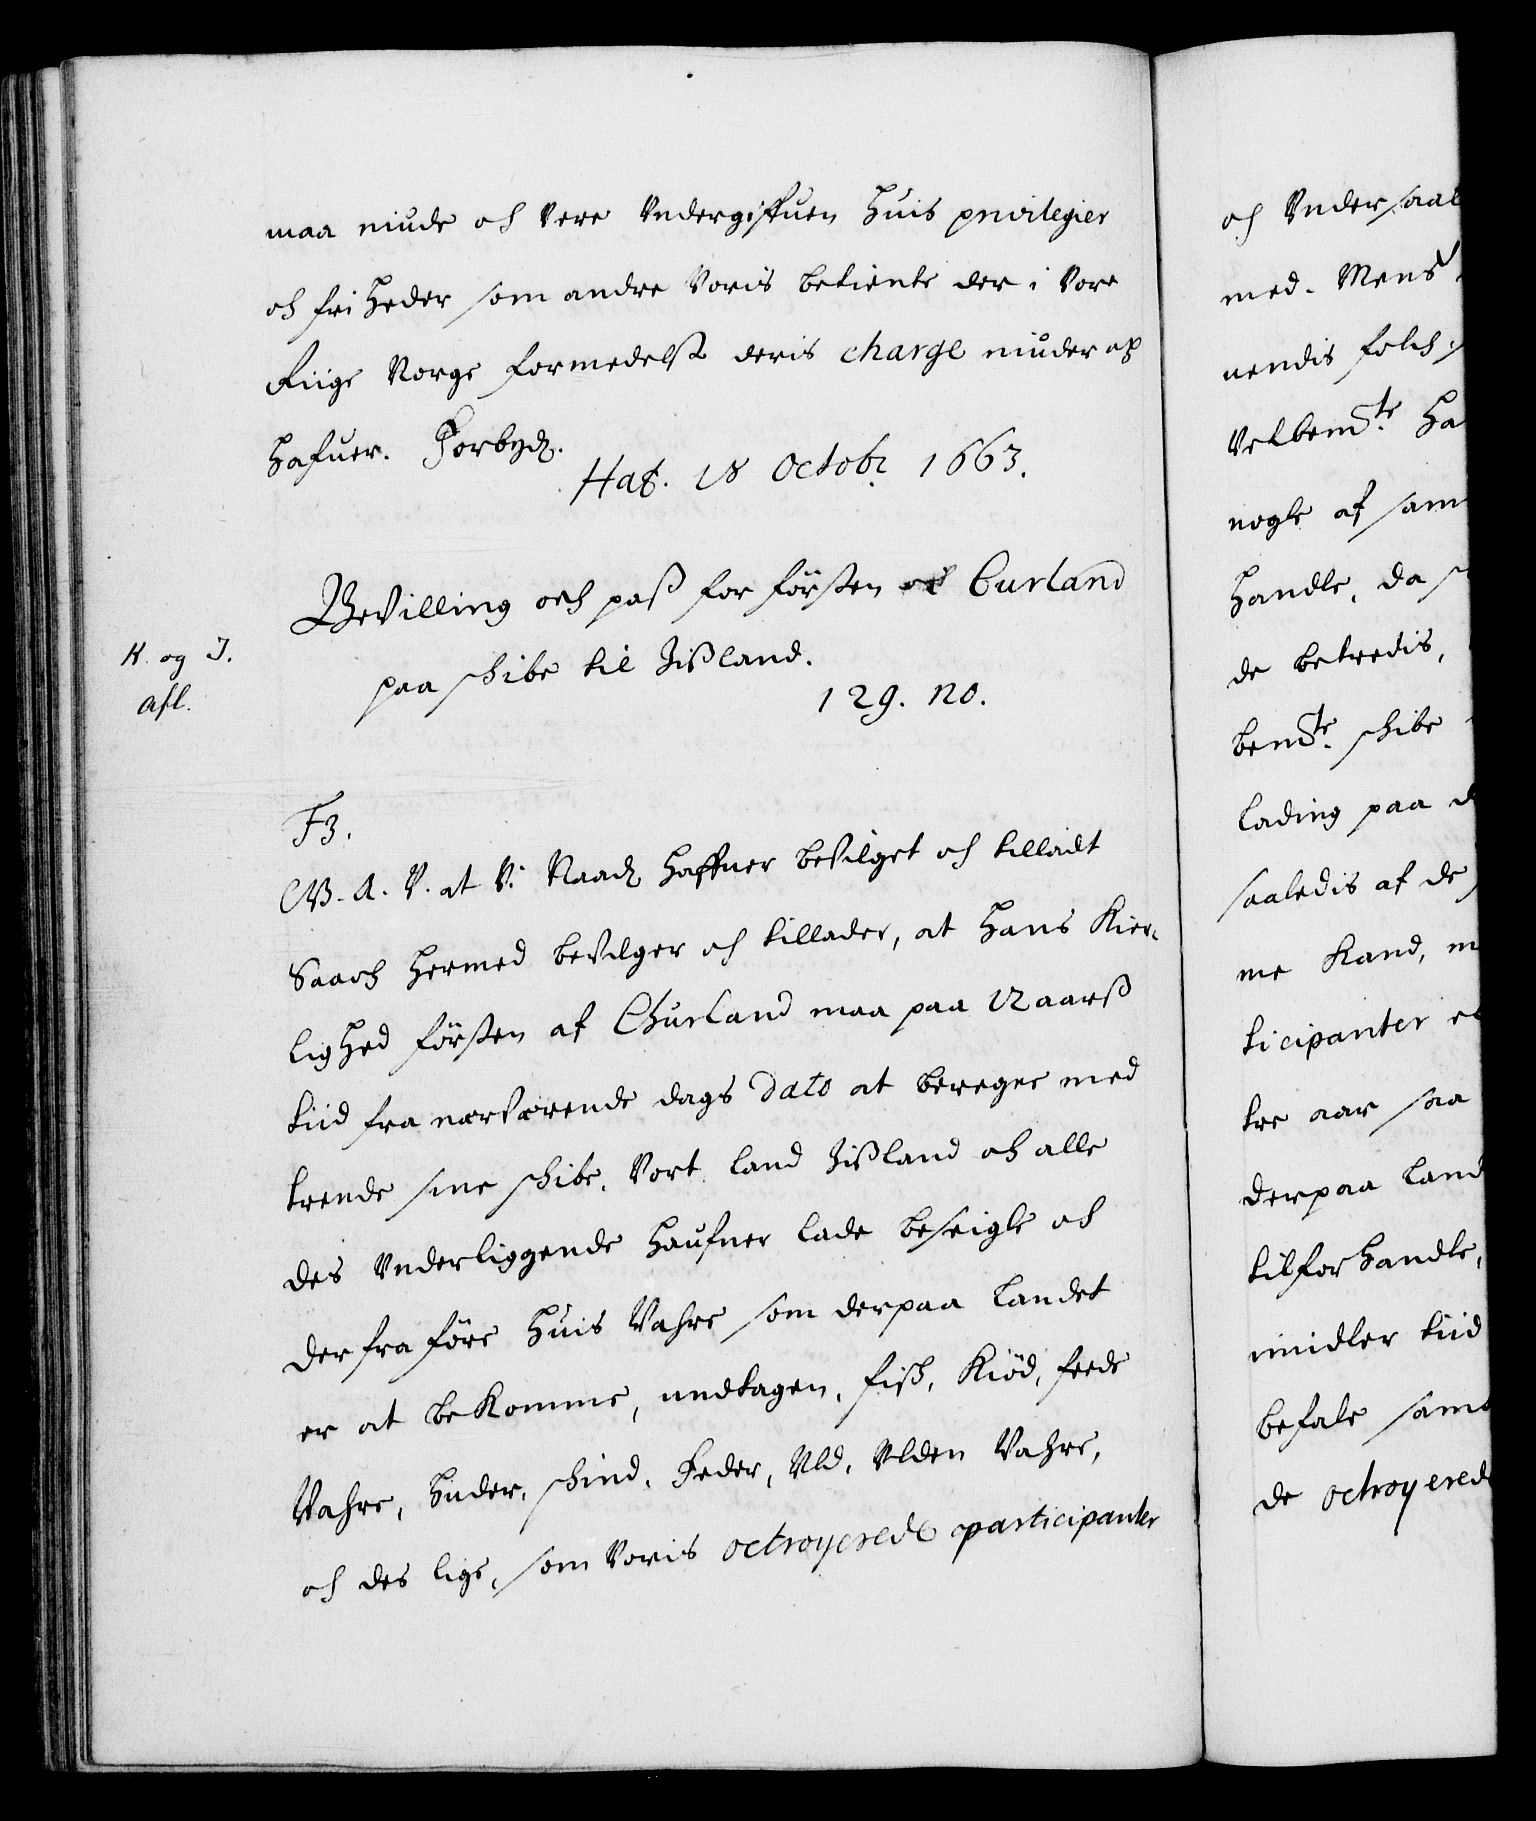 maa niude och vere Undergiffuen huis privilegier
och friheder som andre Voris betiente der i Vore
Riige Norge formedelst deris charge niuder och
hafuer. Forbydz.
Haf. 18 Octobr. 1663.
Bevilling och pass for försten af Curland
paa schibe til Iissland.
129. no.
K. og I.
Afl.
F3.
G. A. V. at Vi Naadz haffuer bevilget och tilladt
Saa och hermed bevilger och tillader, at hans Kier-
lighed försten af Churland maa paa 12 aarss
tiid fra nerverende dags dato at beregne med
trende sine schibe, Vort land Iissland och alle
des Underliggende haufner lade beseigle och
der fra före huis Vahre som derpaa landet
er at bekomme, undtagen, fisk, Kiöd, feede
Vahre, huder, schind, Feder, Uld, Ulden Vahre,
och des lige, som Voris octroyerede participanter
och Undersaat
med. Mens
uendis folch
Velbemte. Ha
nogle af sam
handle, da s
de betredis,
bemte. schibe
lading paa d
saaledis af de
me kand, m
ticipanter e
tre aar saa
derpaa land
tilforhandle,
imidler tiid
befale samt
de octroyered